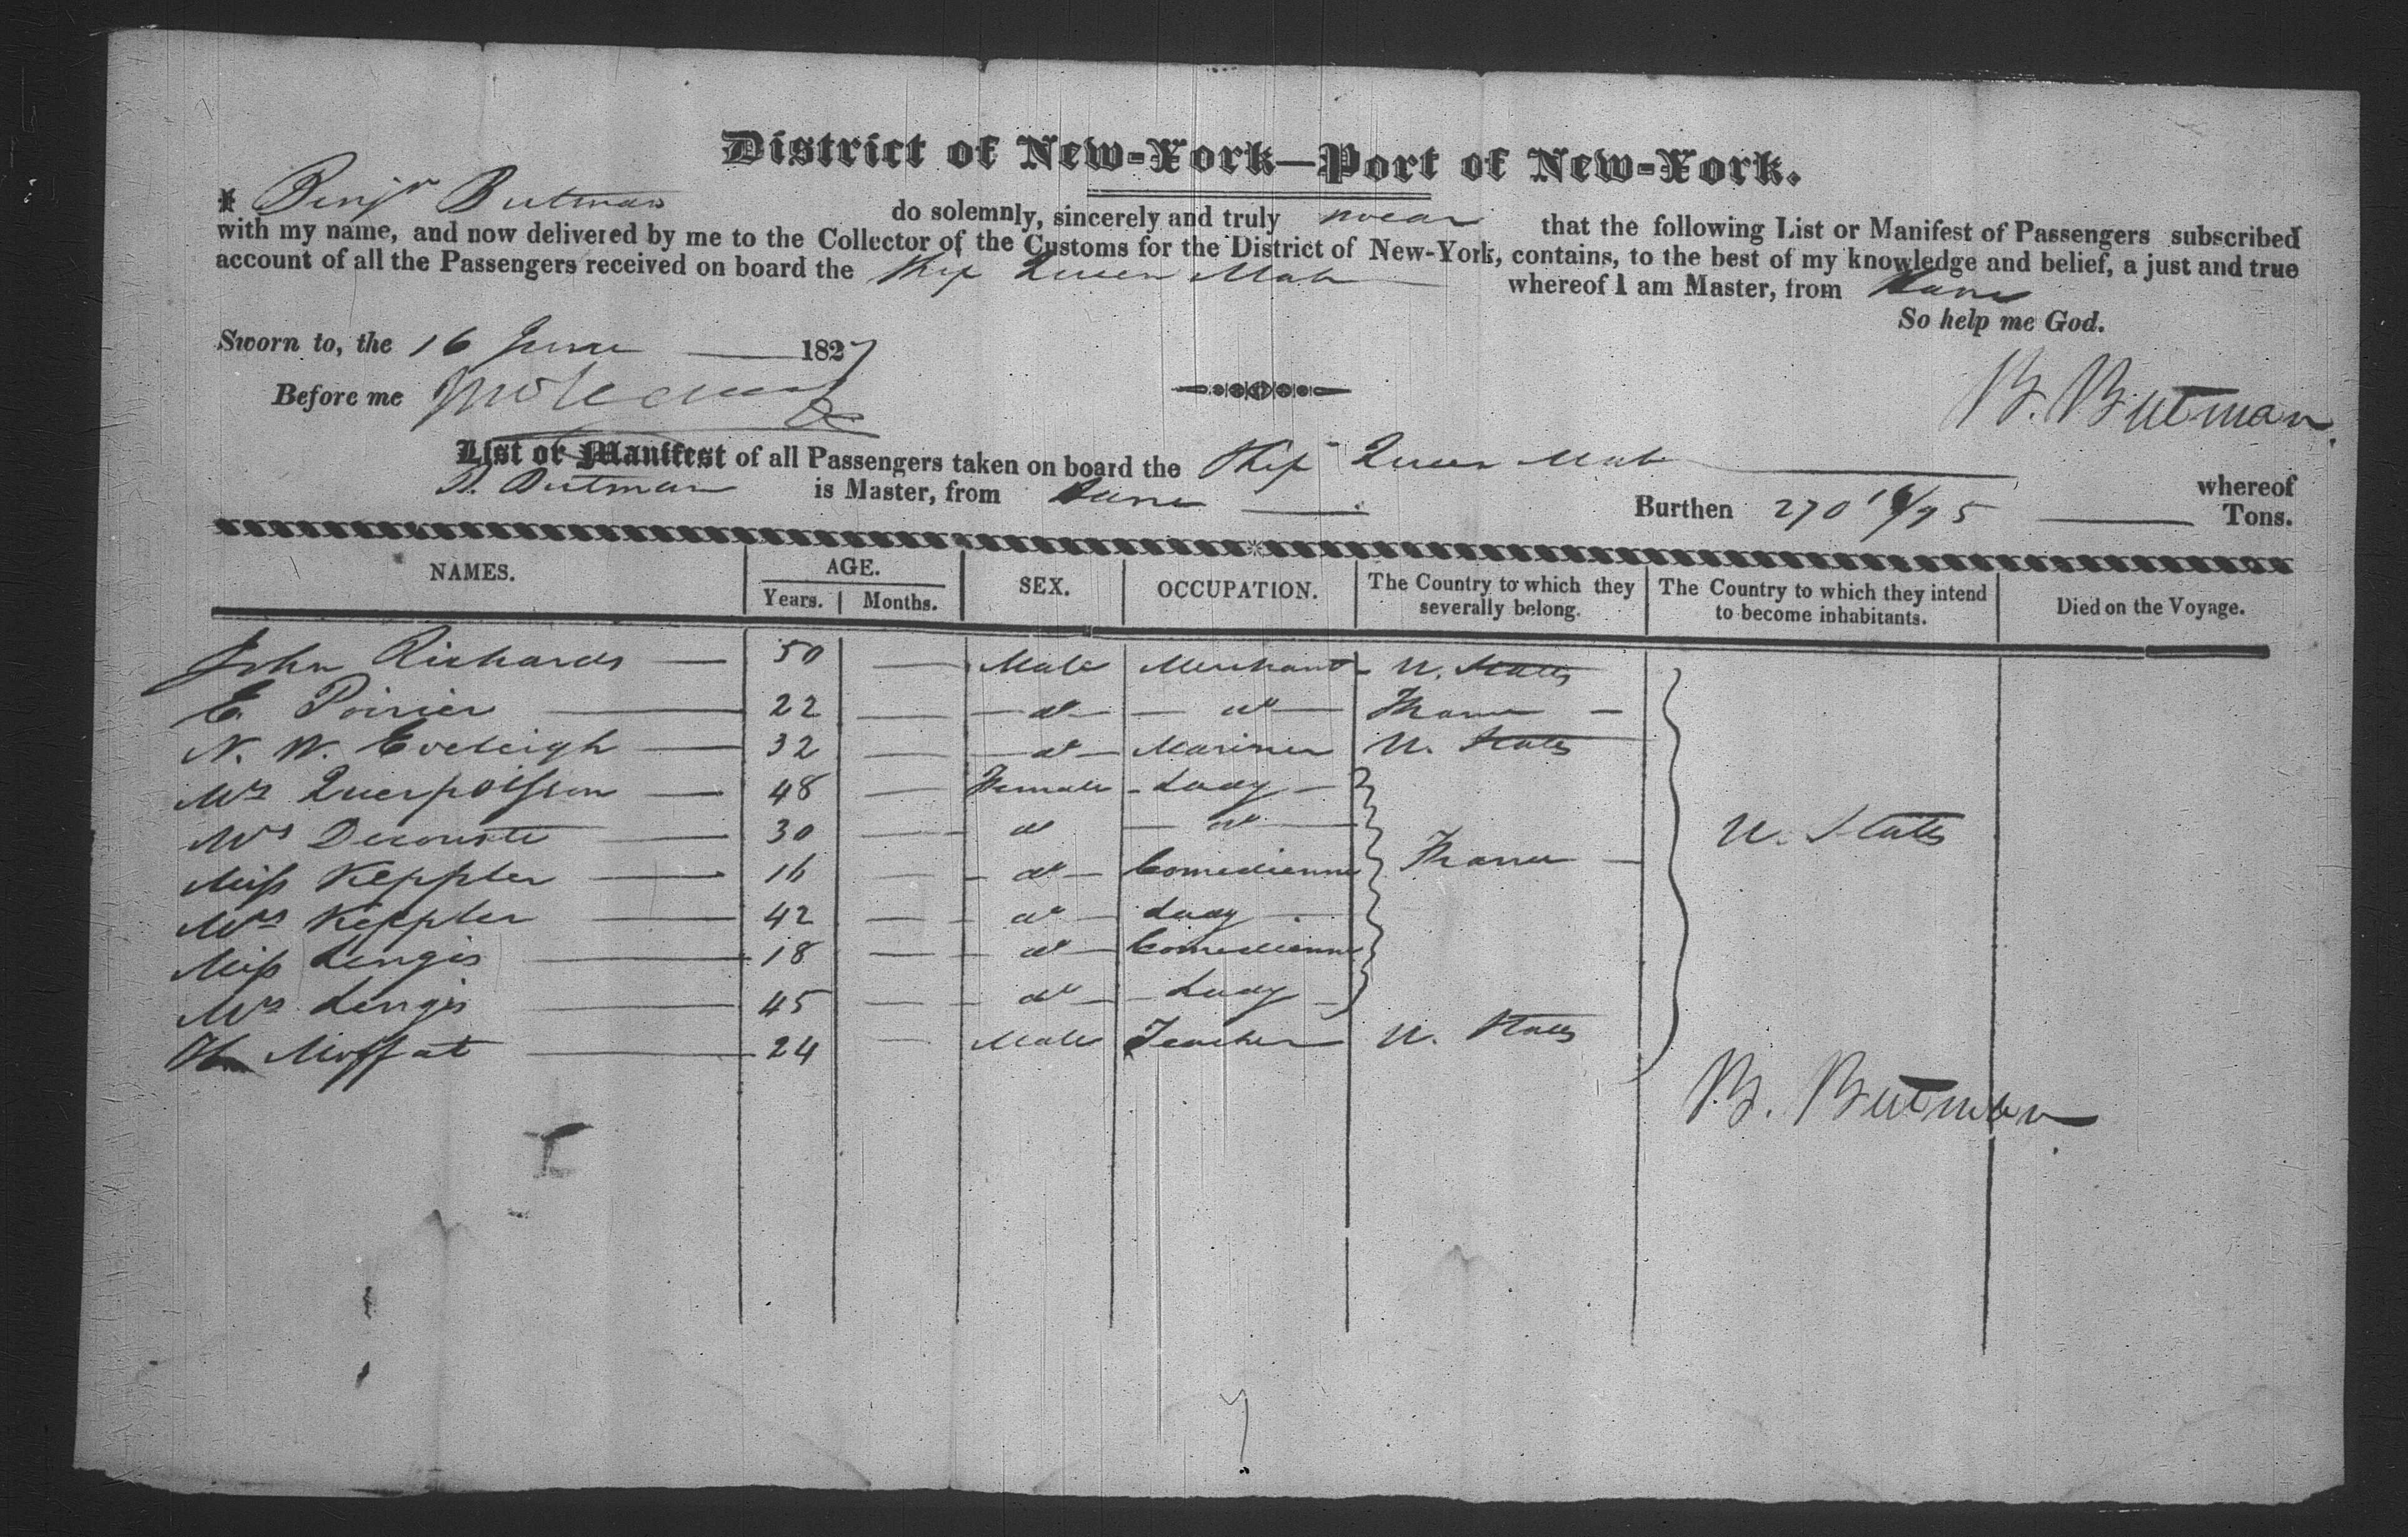 District of New-York—Port of New-York.
I Benjn Butman do solemnly, sincerely and truly swear that the following List or Manifest of Passengers subscribed
with my name, and now delivered by me to the Collector of the Customs for the District of New-York, contains, to the best of my knowledge and belief, a just and true
account of all the Passengers received on board the Ship Queen Mab whereof I am Master, from Havre
So help me God.
Sworn to, the 16 June 1827
Before me
B. Butman
List or Manifest of all Passengers taken on board the Ship Queen Mab whereof
B. Butman is Master, from Havre Burthen 270 /95 Tons.
NAMES. AGE. SEX. OCCUPATION. The Country to which they severally belong. The Country to which they intend to become inhabitants. Died on the Voyage.
Years. Months.
John Richards — 50 — Male Merchant U. States
E. Poirier — 22 — do — do — France —
N. W. Eveleigh — 32 — do — Mariner U. States
Mrs Querpoisson — 48 — Female - Lady -
Mrs Decouste — 30 — do — do —
Miss Keppler — 16 — do — Comedienne France — U. States
Mrs Keppler — 42 — do — Lady —
Miss Lengis — 18 — do — Comedienne
Mrs Lengis — 45 — do — Lady —
Moffat — 24 — Male Teacher U. States
B. Butman